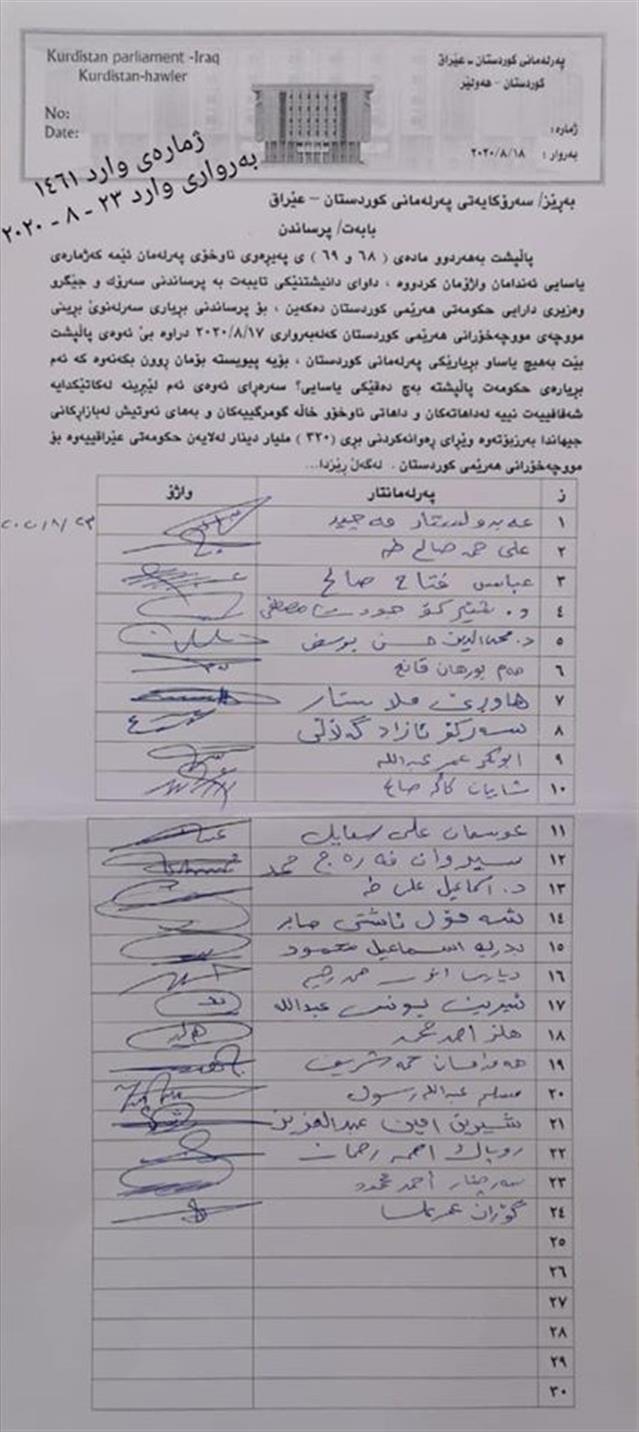 Kurdistan parliament -Iraq
Kurdistan-hawler
No:
Date:
پەرلەمانی كوردستان - عێراق
كوردستان - هەولێر
ژمارە :
بەروار : ٢٠٢٠/٨/١٨
ژمارەی وارد ١٤٦١
بەرواری وارد ٢٣ - ٨ - ٢٠٢٠
بەڕێز/ سەرۆكایەتی پەرلەمانی كوردستان - عێراق
بابەت/ پرساندن
پاڵپشت بەهەردوو مادەی ( ٦٨ و ٦٩ ) ی پەیڕەوی ناوخۆی پەرلەمان ئێمە كەژمارەی
یاسایی ئەندامان واژۆمان كردووە ، داوای دانیشتنێكی تایبەت بە پرساندنی سەرۆك و جێگرو
وەزیری دارایی حكومەتی هەرێمی كوردستان دەكەین ، بۆ پرساندنی بڕیاری سەرلەنوێ بڕینی
مووچەی مووچەخۆرانی هەرێمی كوردستان كەلەبەرواری ٢٠٢٠/٨/١٧ دراوە بێ ئەوەی پاڵپشت
بێت بەهیچ یاساو بڕیارێكی پەرلەمانی كوردستان ، بۆیە پیویستە بۆمان ڕوون بكەنەوە كە ئەم
بڕیارەی حكومەت پاڵپشتە بەچ دەقێكی یاسایی؟ سەرەڕای ئەوەی ئەم لێبڕینە لەكاتێكدایە
شەفافییەت نییە لەداهاتەكان و داهاتی ناوخۆو خاڵە گومرگییەكان و بەهای نەوتیش لەبازاڕەكانی
جیهاندا بەرزبۆتەوە وێڕای ڕەوانەكردنی بڕی (٣٢٠ ) ملیار دینار لەلایەن حكومەتی عێراقییەوە بۆ
مووچەخۆرانی هەرێمی كوردستان . لەگەڵ ڕێزدا...
ز پەرلەمانتار واژۆ
١ عەبدولستار مەجید
٢ علی حمە صالح طە
٣ عباس فتاح صالح
٤ د. شێركۆ جودت مصطفی
٥ د. محی‌الدین حسن یوسف
٦ بورهان قانع
٧ هاوڕێ مەلا ستار
٨ سەركۆ ئازاد گەڵاڵی
٩ ابوبكر عمر عبدالله
١٠ شایان كاكە صالح
١١ عوسمان علی
١٢ سیروان فەرەج محمد
١٣ د. اسماعیل علی طە
١٤ شەمۆل ئاشتی صابر
١٥ بدریە اسماعیل محمود
١٦ انور حمە رحیم
١٧ شیرین یونس عبدالله
١٨ هلز احمد محمد
١٩ حمە شریف
٢٠ مسلم عبدالله رسول
٢١ شیرین امین عبدالعزیز
٢٢ روپاك احمد رحمان
٢٣ سەرچنار أحمد محمود
٢٤ گۆران عمر
٢٥
٢٦
٢٧
٢٨
٢٩
٣٠